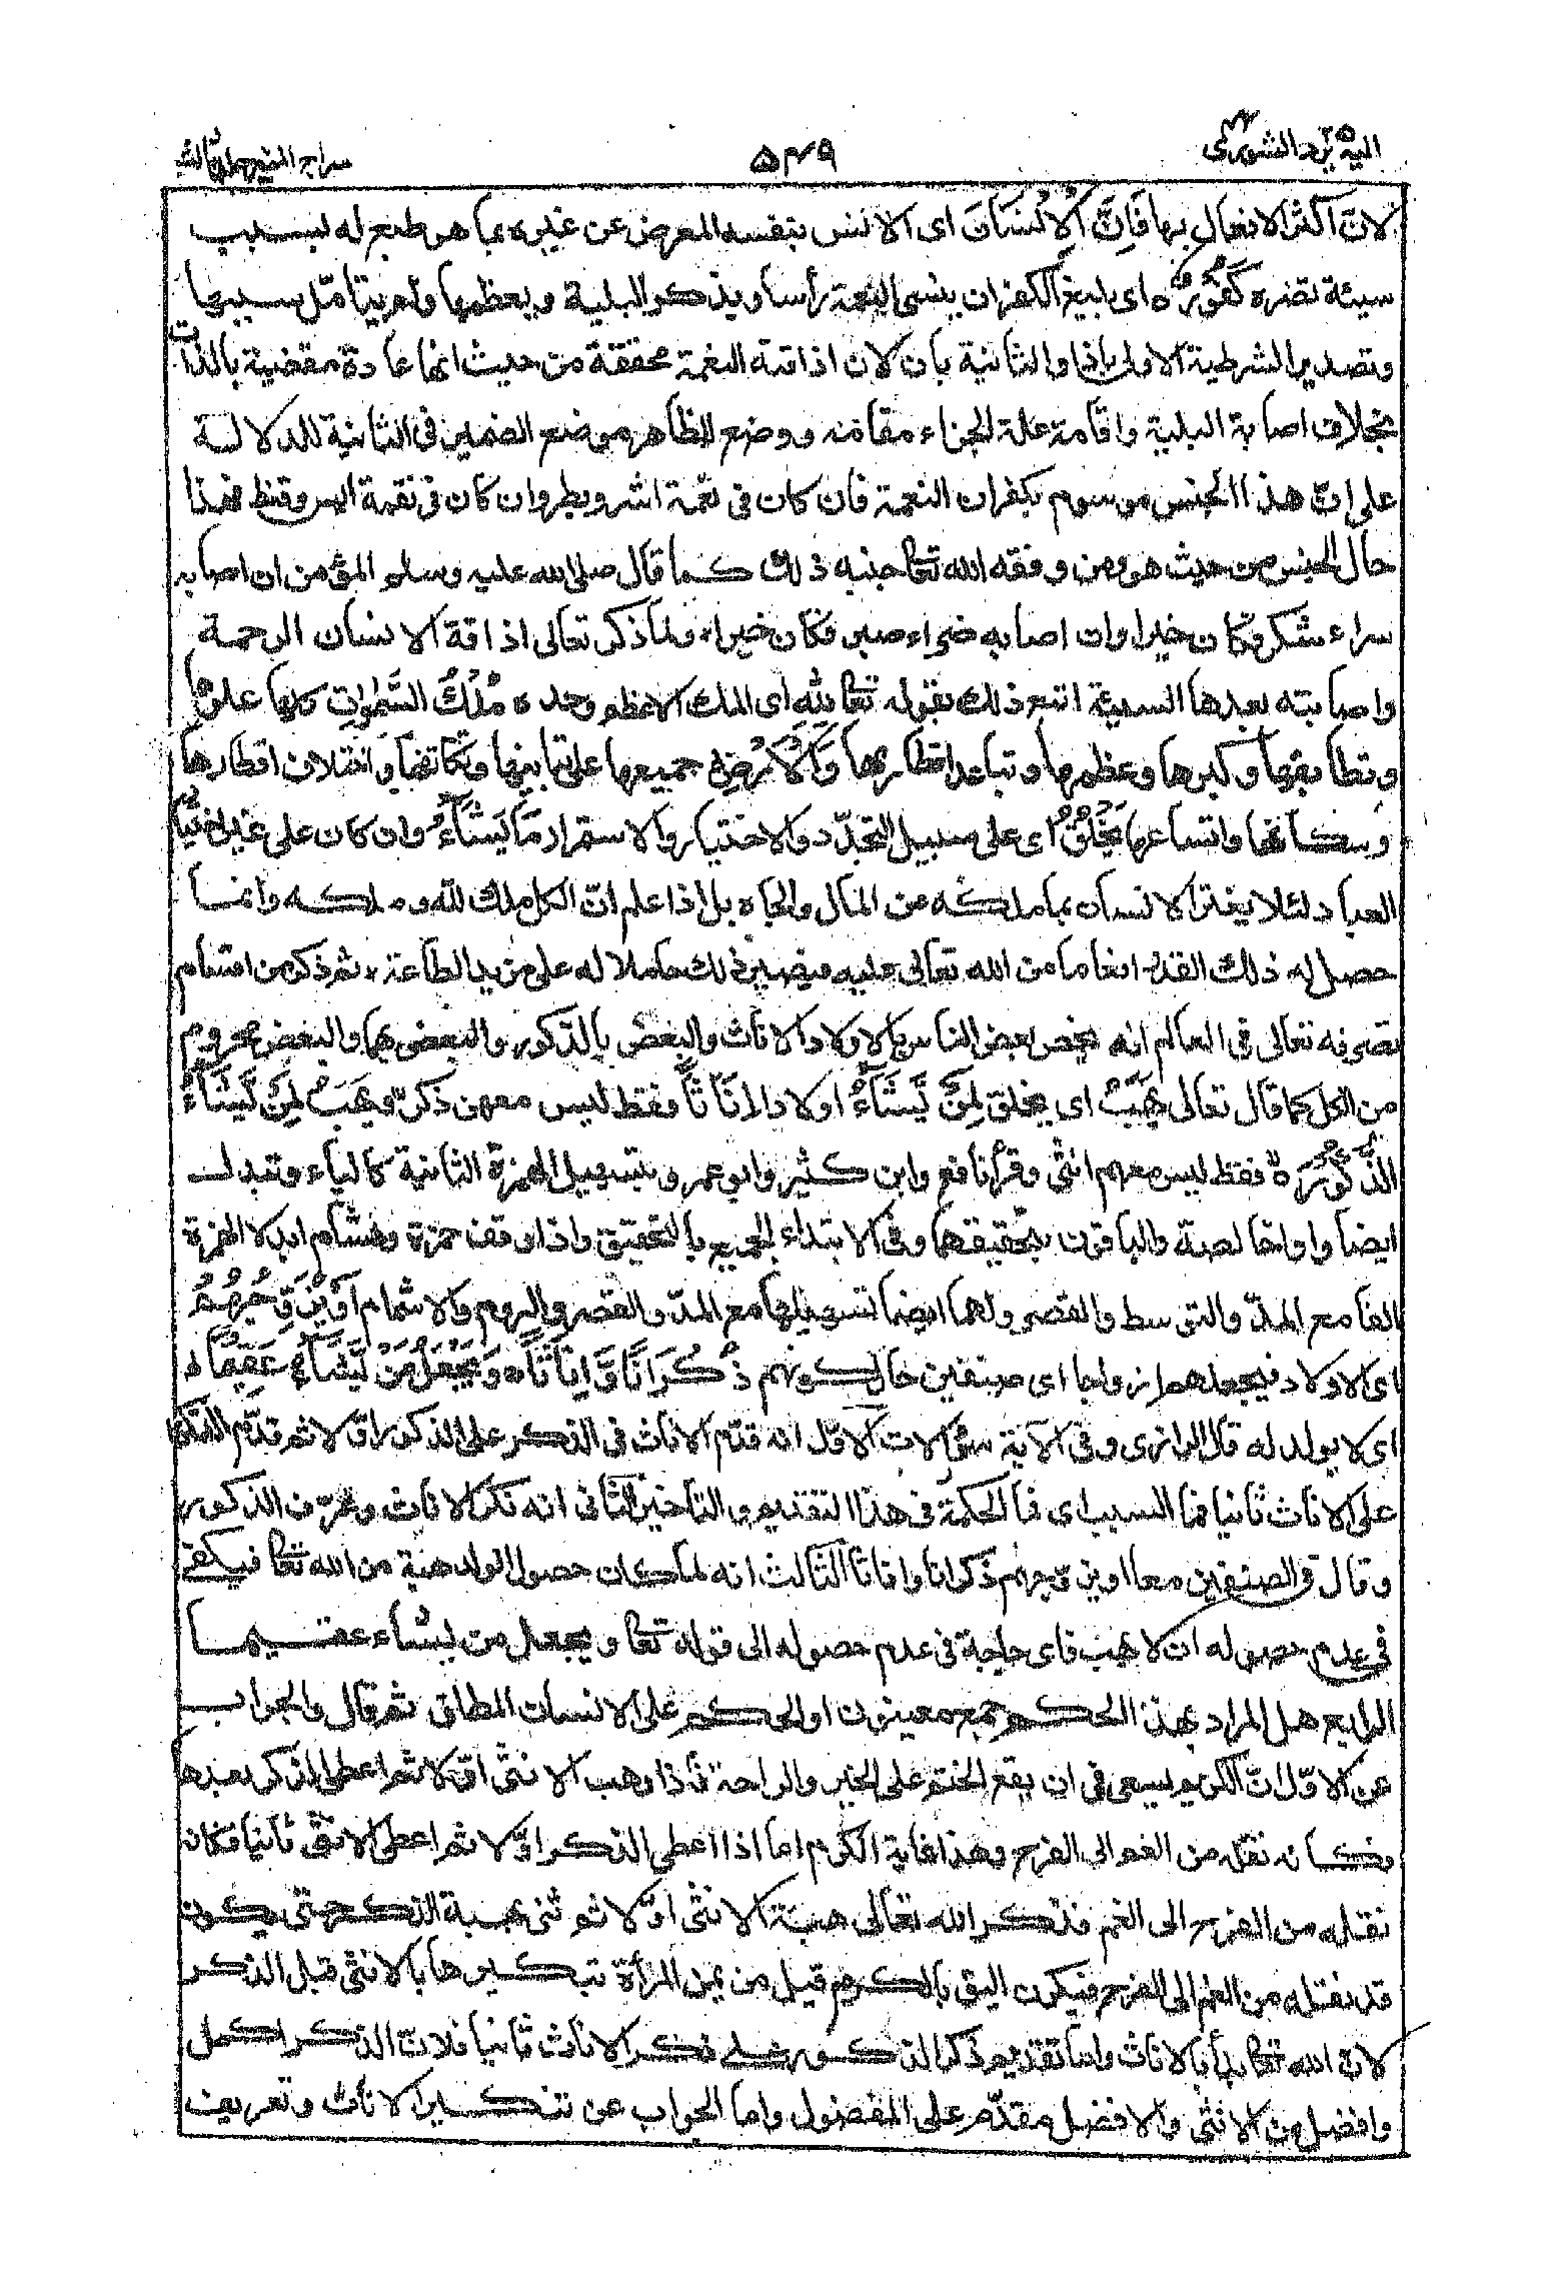 اليه يرد الشورى ٥٤٩ سراج المنير جلد ثالث
لان اكثر الافعال بها فَاِنَّ الْاِنْسَانَ اى الانس بنفسه المعرض عن غيره بما هو طبع له بسبب
سيئة تضره كَفُوْرٌ ه اى بليغ الكفران ينسى النعمة رأسا ويذكر البلية ويعظمها ولم يتامل سببها
وتصدير الشرطية الاولى باذا والثانية بان لان اذاقة النعمة محققة من حيث انها عادة مقضية بالذات
بخلاف اصابة البلية واقامة علة الجزاء مقامه ووضع الظاهر موضع الضمير فى الثانية للدلالة
على ان هذا الجنس موسوم بكفران النعمة فان كان فى نعمة اشر وبطر وان كان فى نقمة ايس وقنط فهذا
حال الجنس من حيث هو ومن وفقه الله تعا جنبه ذلك كما قال صلى الله عليه وسلم المؤمن ان اصابه
سراء شكر فكان خيرا وان اصابه ضراء صبر فكان خيرا، ولما ذكر تعالى اذاقة الانسان الرحمة
واصابته بعدها السيئة اتبع ذلك بقوله تعا لِلّٰهِ اى الملك الاعظم وحده مُلْكُ السَّمٰوٰتِ كلها على علوها
وتطابقها وكبرها وعظمها وتباعد اقطارها وَالْاَرْضِ جميعها على تباينها وتكاثفها واختلاف اقطارها
وسكانها واتساعها يَخْلُقُ اى على سبيل التجدد والاختيار والاستمرار مَا يَشَآءُ وان كان على غير اختيار
العباد لئلا يغتر الانسان بما ملكه من المال والجاه بل اذا علم ان الكل ملك لله وملكه وانما
حصل له ذلك القدر انعاما من الله تعالى عليه فيصير ذلك حاملا له على مزيد الطاعة، ثم ذكر من اقسام
تصرفه تعالى فى العالم انه يخص بعض الناس بالاولاد الاناث والبعض بالذكور والبعض بهما والبعض محروم
من الكل كما قال تعالى يَهَبُ اى يخلق لِمَنْ يَّشَآءُ اولادا اِنَاثًا فقط ليس معهن ذكر وَّيَهَبُ لِمَنْ يَّشَآءُ
الذُّكُوْرَ ه فقط ليس معهم انثى وقرأ نافع وابن كثير وابو عمرو بتسهيل الهمزة الثانية كالياء وتبدل
ايضا واوا خالصة والباقون بتحقيقهما وفى الابتداء الجميع بالتحقيق واذا وقف حمزة وهشام ابدلا الهمزة
الفا مع المد والتوسط والقصر ولهما ايضا تسهيلها مع المد والقصر والروم والاشمام اَوْ يُزَوِّجُهُمْ
اى الاولاد فيجعلهم ازواجا اى صنفين حال كونهم ذُكْرَانًا وَّاِنَاثًا ه وَيَجْعَلُ مَنْ يَّشَآءُ عَقِيْمًا ط
اى لا يولد له قال الرازى وفى الآية سؤالات الاول انه قدم الاناث فى الذكر على الذكور اولا ثم قدم الذكور
على الاناث ثانيا فما السبب اى فما الحكمة فى هذا التقديم والتاخير الثانى انه نكر الاناث وعرف الذكور
وقال فى الصنفين معا او يزوجهم ذكرانا واناثا الثالث انه لما كان حصول الولد هبة من الله تعا فيكفى
فى عدم حصوله ان لا يهب فاى حاجة فى عدم حصوله الى قوله تعا ويجعل من يشاء عقيما
الرابع هل المراد بهذا الحكم جمع معينون او الحكم على الانسان المطلق ثم قال والجواب
عن الاول ان الكريم يسعى فى ان يقع الختم على الخير والراحة فاذا وهب الانثى اولا ثم اعطى الذكر بعدها
فكانه نقله من الغم الى الفرح وهذا غاية الكرم اما اذا اعطى الذكر اولا ثم اعطى الانثى ثانيا فكانه
نقله من الفرح الى الغم فذكر الله تعالى هبة الانثى اولا ثم ثنى بهبة الذكر حتى يكون
قد نقله من الغم الى الفرح فيكون اليق بالكرم قيل من يمن المرأة تبكيرها بالانثى قبل الذكر
لان الله تعا بدأ بالاناث واما تقديم ذكر الذكور على ذكر الاناث ثانيا فلان الذكر اكمل
وافضل من الانثى والافضل مقدم على المفضول واما الجواب عن تنكير الاناث وتعريف